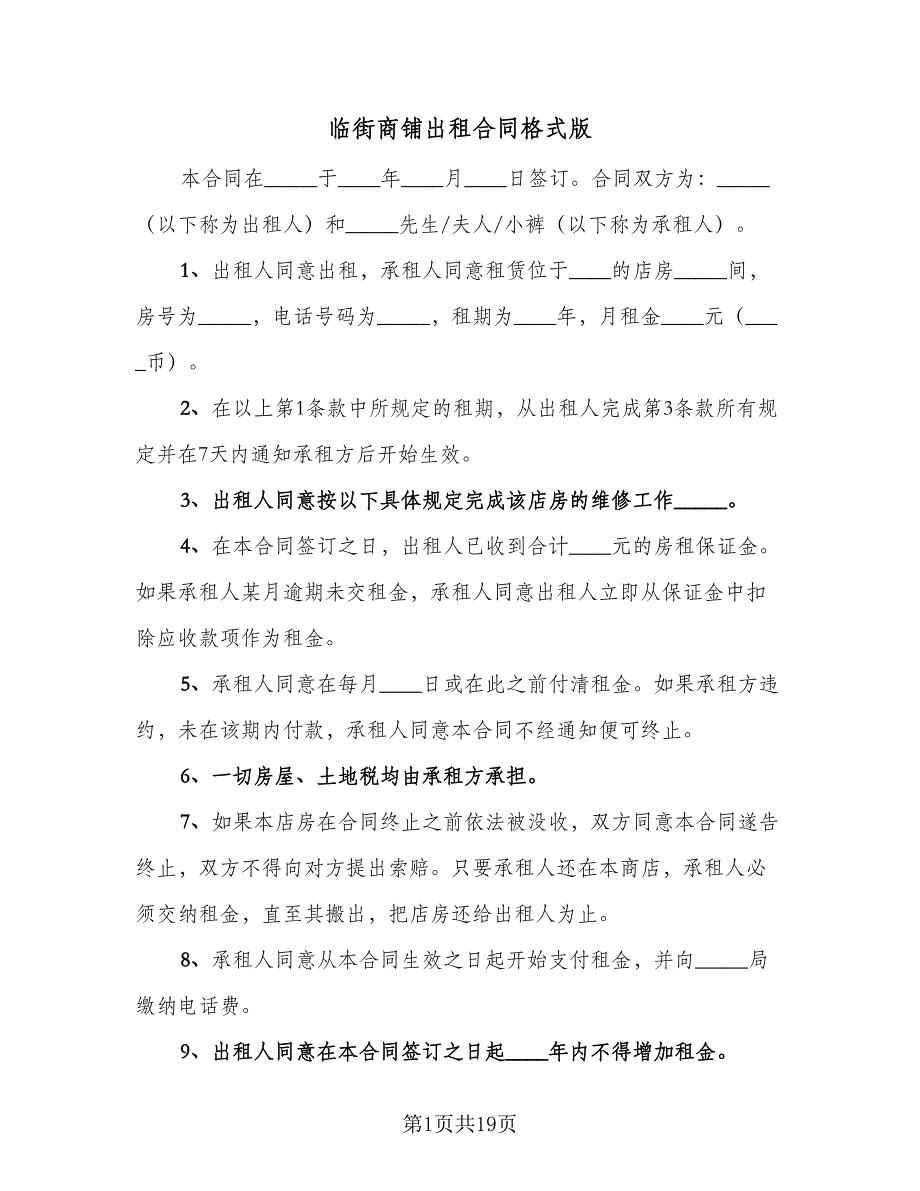 临街商铺出租合同格式版
本合同在_____于____年____月____日签订。合同双方为：_____
（以下称为出租人）和_____先生/夫人/小裤（以下称为承租人）。
1、出租人同意出租，承租人同意租赁位于____的店房_____间，
房号为_____，电话号码为_____，租期为____年，月租金____元（___
_币）。
2、在以上第1条款中所规定的租期，从出租人完成第3条款所有规
定并在7天内通知承租方后开始生效。
3、出租人同意按以下具体规定完成该店房的维修工作_____。
4、在本合同签订之日，出租人已收到合计____元的房租保证金。
如果承租人某月逾期未交租金，承租人同意出租人立即从保证金中扣
除应收款项作为租金。
5、承租人同意在每月____日或在此之前付清租金。如果承租方违
约，未在该期内付款，承租人同意本合同不经通知便可终止。
6、一切房屋、土地税均由承租方承担。
7、如果本店房在合同终止之前依法被没收，双方同意本合同遂告
终止，双方不得向对方提出索赔。只要承租人还在本商店，承租人必
须交纳租金，直至其搬出，把店房还给出租人为止。
8、承租人同意从本合同生效之日起开始支付租金，并向_____局
缴纳电话费。
9、出租人同意在本合同签订之日起____年内不得增加租金。
第1页共19页